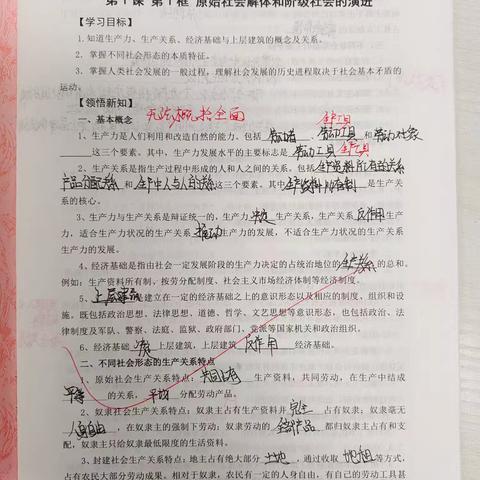 第1课 第1框 原始社会解体和阶级社会的演进
【学习目标】
1. 知道生产力、生产关系、经济基础与上层建筑的概念及关系。
2. 掌握不同社会形态的本质特征。
3. 掌握人类社会发展的一般过程，理解社会发展的历史进程取决于社会基本矛盾的
运动。
【领悟新知】
无法概括全面
生产工具
一、基本概念
1、生产力是人们利用和改造自然的能力，包括 劳动者 、劳动工具 和 劳动对象
这三个要素。其中，生产力发展水平的主要标志是 劳动工具 生产工具
2、生产关系是指生产过程中形成的人和人之间的关系。包括 生产资料所有的关系
产品分配关系 和 生产中人与人的关系 这三个要素。其中 生产资料所有制 是生产关
系的核心。
3、生产力与生产关系是辩证统一的，生产力 决定 生产关系，生产关系 反作用 生产
力，适合生产力状况的生产关系 推动 生产力的发展，不适合生产力状况的生产关系
生产力的发展。
4、经济基础是指由社会一定发展阶段的生产力决定的占统治地位的 生产关系 的总和。
例如：生产资料所有制、按劳分配制度、社会主义市场经济体制等经济制度。
5、上层建筑 是建立在一定的经济基础之上的意识形态以及相应的制度、组织和设
施。既包括政治思想、法律思想、道德、哲学、文艺思想等意识形态，也包括政治、法
律制度及军队、警察、法庭、监狱、政府部门、党派等国家机关和政治组织。
6、经济基础 决定 上层建筑，上层建筑 反作用 经济基础。
二、不同社会形态的生产关系特点
1、原始社会生产关系特点：共同占有 生产资料，共同劳动，在生产中结成
平等 的关系，平均 分配劳动产品。
2、奴隶社会生产关系特点：奴隶主占有生产资料并 完全 占有奴隶；奴隶毫无
人身自由 ，在奴隶主的强制下劳动；奴隶劳动的 全部产品 都归奴隶主占有和支
配，奴隶主只给奴隶最低限度的生活资料。
3、封建社会生产关系特点：地主占有绝大部分 土地 ，通过收取 地租 等方式，
占有农民大部分劳动成果。相对于奴隶，农民有一定的人身自由，有自己的劳动工具甚